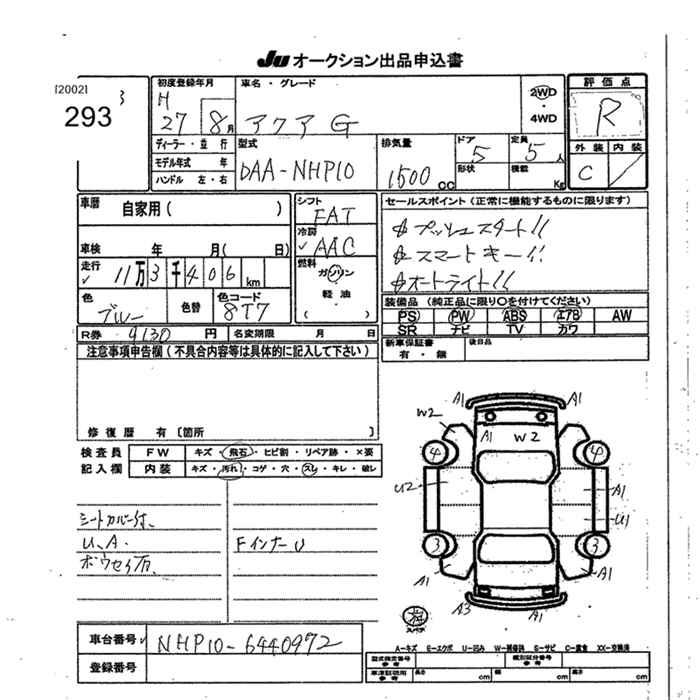 JU オークション出品申込書
[2002]
293
3
初度登録年月
H
27 8月
車名・グレード
アクア G
2WD
・
4WD
評価点
R
外装 内装
C
ディーラー・並行
モデル年式 年
ハンドル 左・右
型式
DAA-NHP10
排気量
1500 cc
ドア
5
形状
定員
5人
積載
Kg
車歴
自家用( )
シフト
FAT
冷房
AAC
車検 年 月( 日)
走行
11万3千406km
燃料
ガソリン
・
軽油
( )
色
ブルー
色替
色コード
8T7
R券 9130 円 名変期限 月 日
セールスポイント(正常に機能するものに限ります)
プッシュスタート!!
スマートキー!!
オートライト!!
装備品(純正品に限り〇を付けてください)
PS PW ABS エアB AW
SR ナビ TV カワ
新車保証書
有・無
後日品
注意事項申告欄(不具合内容等は具体的に記入して下さい)
修復歴 有〔箇所 〕
検査員
記入欄
FW キズ・飛石・ヒビ割・リペア跡・×要
内装 キズ・汚れ・コゲ・穴・スレ・キレ・破レ
シートカバー付、
U、A.
ボウセイ有、
Fインナー U
A1 A1
W2
A1 W2 A1
4 4
U2
A1
U1
3 3
A1 A1
A3 A1
スペア
車台番号 NHP10-6440972
登録番号
A―キズ E―エクボ U―凹み W―補修跡 S―サビ C―腐食 XX―交換済
型式指定番号
参考
類別区分番号
参考
車庫証明用
参考
長さ cm 幅 cm 高さ cm